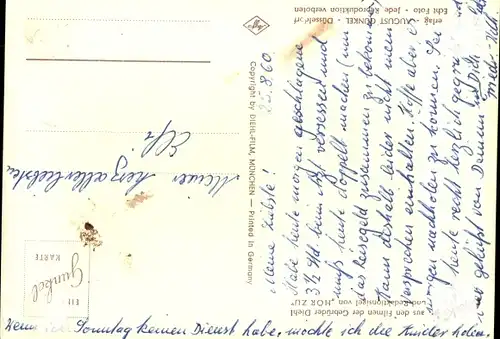 25.8.60
Meine Liebste!
Habe heute morgen geschlagene
3½ Std. beim Arzt gesessen und
muß heute doppelt machen um
das Reisegeld zusammen zu bekommen.
Kann deshalb leider nicht mein
Versprechen einhalten. Hoffe aber es
morgen nachholen zu können. Sei
heute recht herzlich gegrüßt und
geküßt von Deinem
Wenn ich Sonntag keinen Dienst habe, möchte ich die Kinder holen.
Meiner herzallerliebsten
Elfi
Agfa
Copyright by DIEHL-FILM, MÜNCHEN — Printed in Germany
AUGUST GUNKEL · Düsseldorf
Echt Foto · Jede Reproduktion verboten
aus den Filmen der Gebrüder Diehl
und Redaktionsigel von "HÖR ZU"
EINE
Gunkel
KARTE